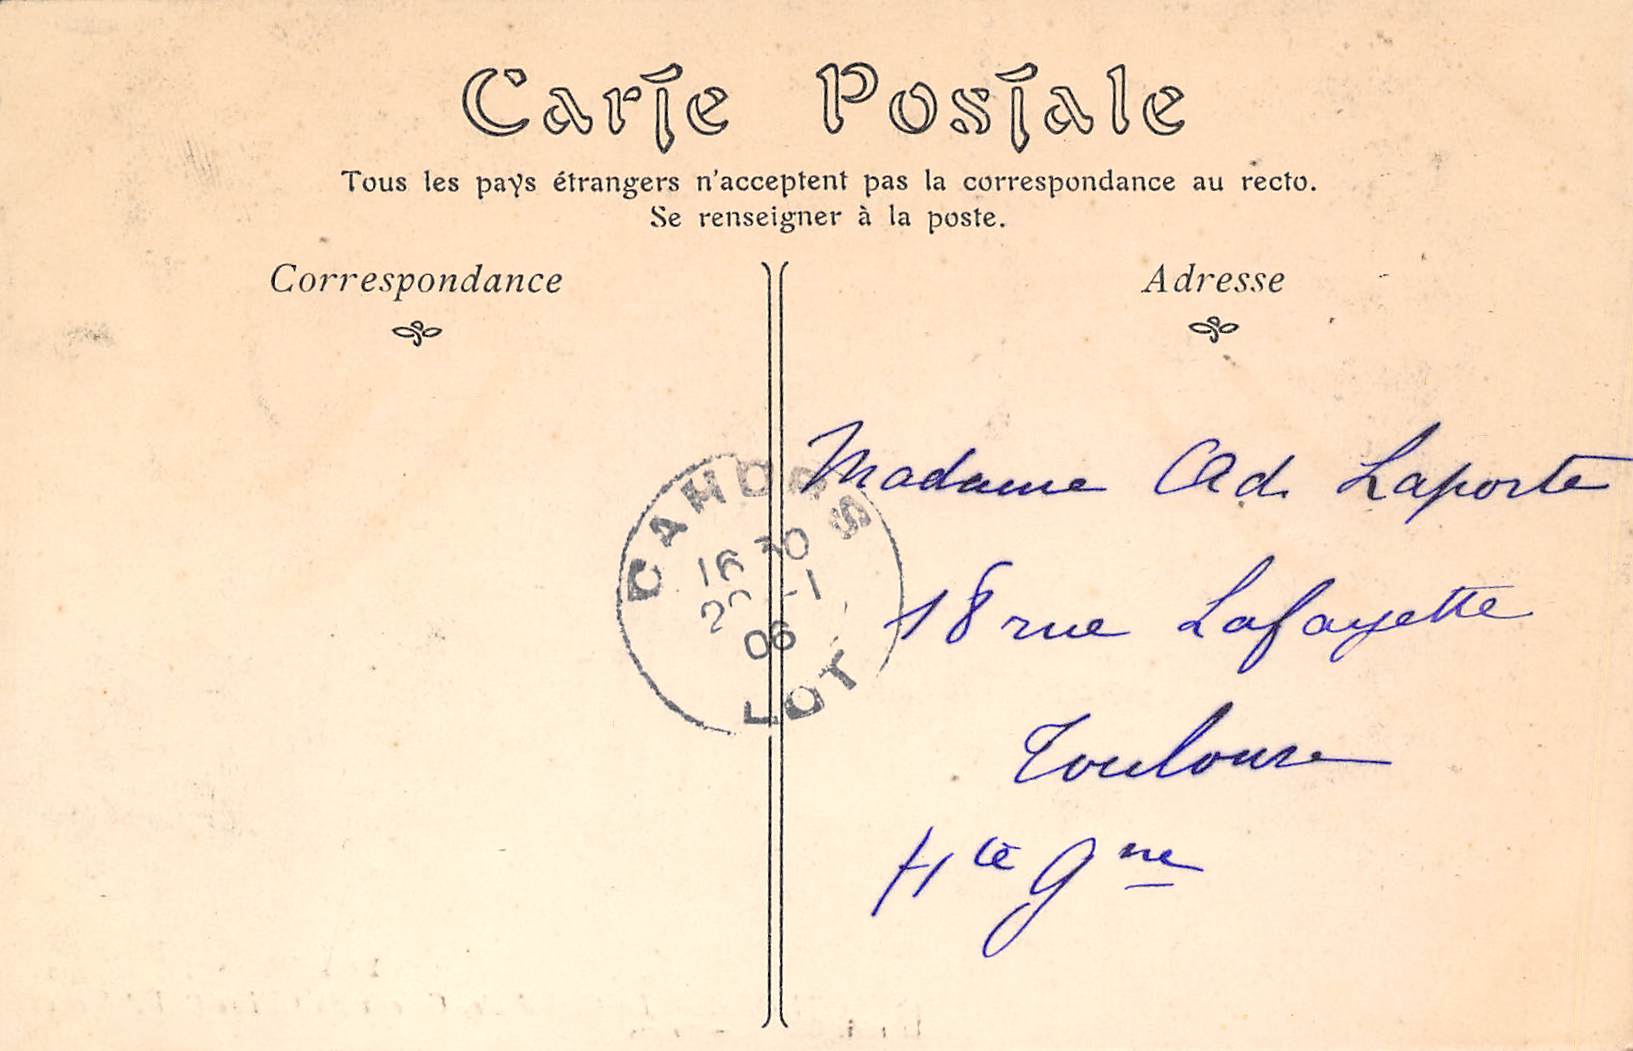 Carte Postale
Tous les pays étrangers n'acceptent pas la correspondance au recto.
Se renseigner à la poste.
Correspondance
Adresse
Madame Ad. Laporte
CAHORS
16 30
-1
06
LOT
18 rue Lafayette
Toulouse
Hte Gne